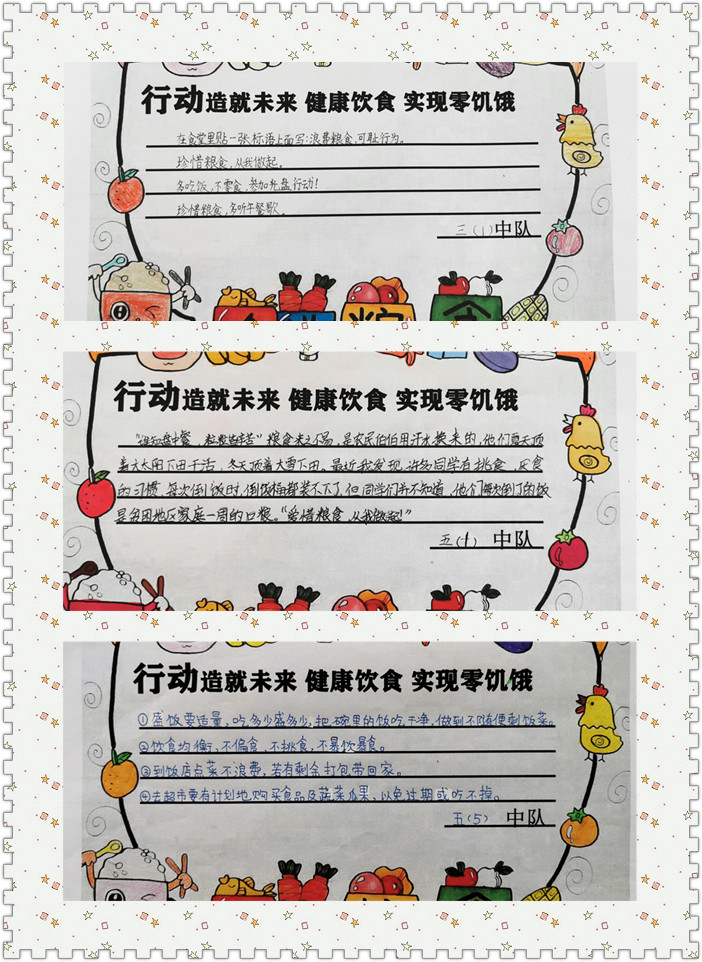 行动造就未来 健康饮食 实现零饥饿
在食堂里贴一张标语上面写:浪费粮食,可耻行为。
珍惜粮食,从我做起。
多吃饭,不零食,参加光盘行动!
珍惜粮食,多听午餐歌。
三(1)中队
粮 食
行动造就未来 健康饮食 实现零饥饿
“谁知盘中餐,粒粒皆辛苦”粮食来之不易,是农民伯伯用汗水换来的,他们夏天顶
着大太阳下田干活,冬天顶着大雪下田。最近我发现,许多同学有挑食、厌食
的习惯,每次倒饭时,倒饭桶都装不下了,但同学们并不知道,他们每次倒了的饭
是贫困地区家庭一周的口粮。“爱惜粮食,从我做起!”
五( )中队
行动造就未来 健康饮食 实现零饥饿
①盛饭要适量,吃多少盛多少,把碗里的饭吃干净,做到不随便剩饭菜。
②饮食均衡,不偏食,不挑食,不暴饮暴食。
③到饭店点菜不浪费,若有剩余打包带回家。
④去超市要有计划地购买食品及蔬菜瓜果,以免过期或吃不掉。
五(5)中队